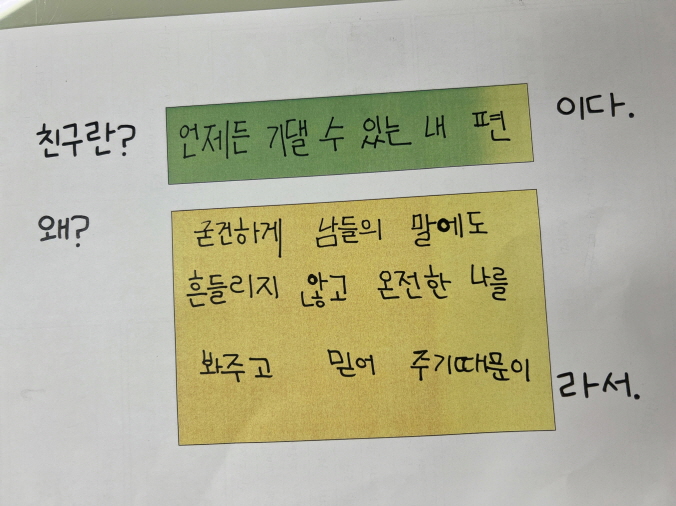 친구란? 언제든 기댈 수 있는 내 편 이다.
왜? 굳건하게 남들의 말에도
흔들리지 않고 온전한 나를
봐주고 믿어 주기때문이 라서.